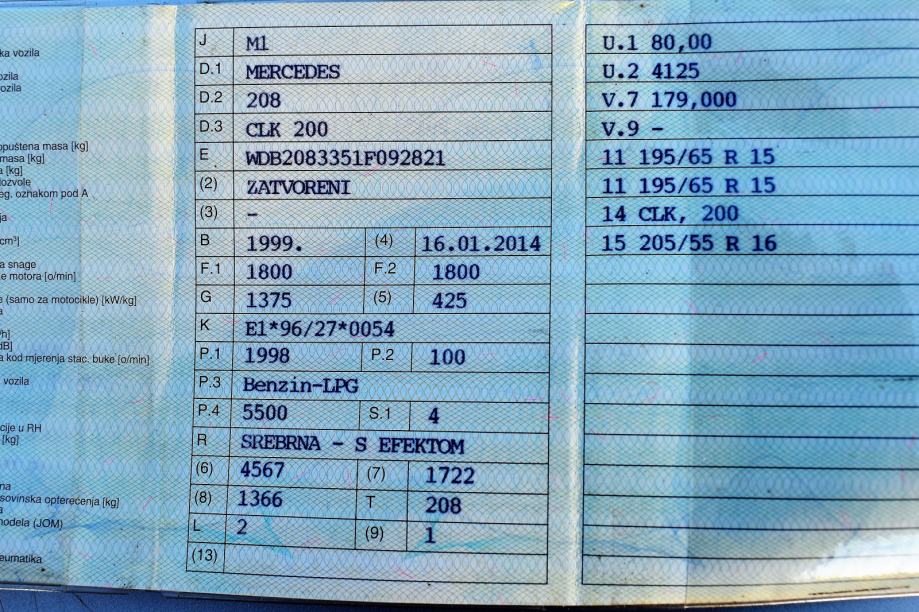 ka vozila
vozila
vozila
opuštena masa [kg]
masa [kg]
a [kg]
dozvole
eg. oznakom pod A
ja
cm³]
a snage
e motora [o/min]
e (samo za motocikle) [kW/kg]
a
/h]
dB]
a kod mjerenja stac. buke [o/min]
vozila
cije u RH
[kg]
na
sovinska opterećenja [kg]
a
modela (JOM)
neumatika
J M1
D.1 MERCEDES
D.2 208
D.3 CLK 200
E WDB2083351F092821
(2) ZATVORENI
(3) –
B 1999. (4) 16.01.2014
F.1 1800 F.2 1800
G 1375 (5) 425
K E1*96/27*0054
P.1 1998 P.2 100
P.3 Benzin-LPG
P.4 5500 S.1 4
R SREBRNA - S EFEKTOM
(6) 4567 (7) 1722
(8) 1366 T 208
L 2 (9) 1
(13)
U.1 80,00
U.2 4125
V.7 179,000
V.9 –
11 195/65 R 15
11 195/65 R 15
14 CLK, 200
15 205/55 R 16